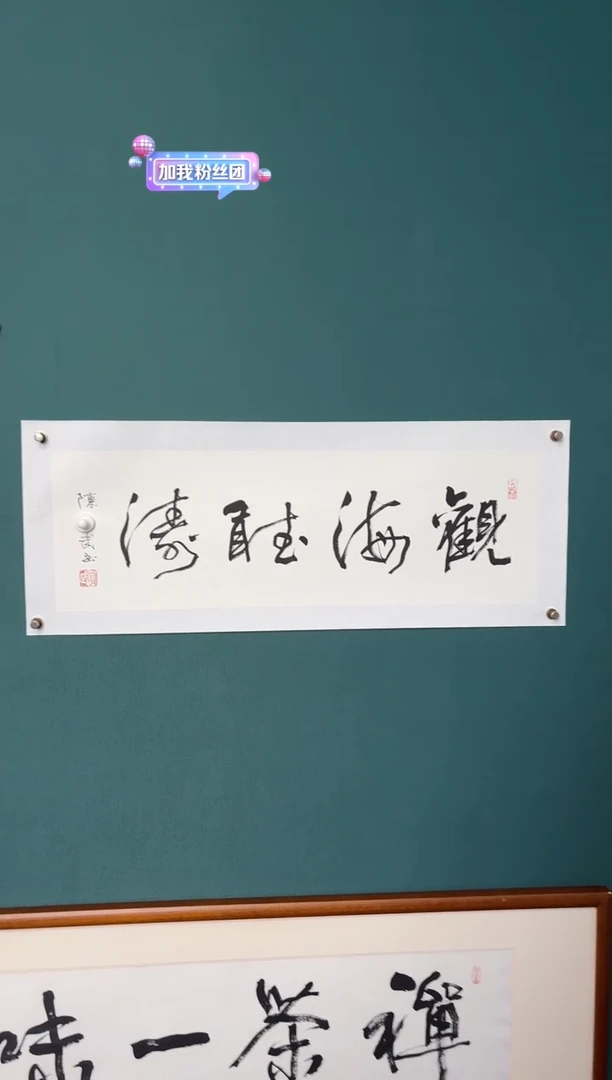 加我粉丝团
觀海聴濤
陳
書
禪茶一味